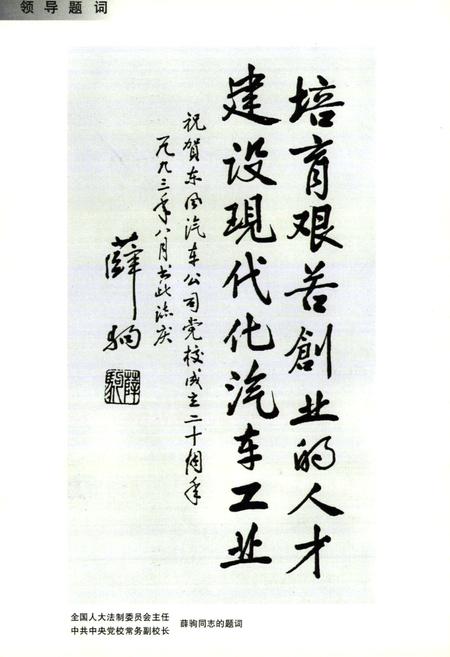 领导题词
培育艰苦創业的人才
建设現代化汽车工业
祝贺东风汽车公司党校成立二十周年
一九九三年八月书此志庆
薛驹
全国人大法制委员会主任
中共中央党校常务副校长
薛驹同志的题词